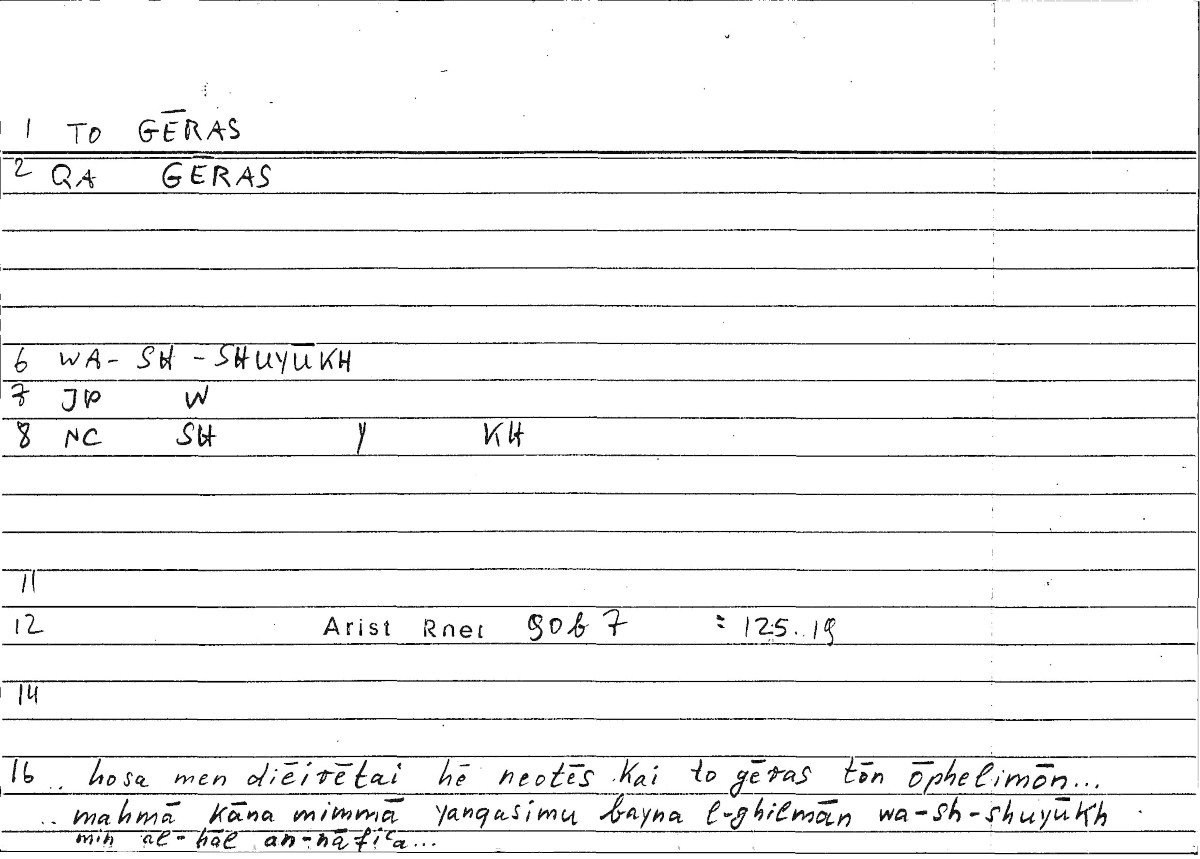 1 TO GĒRAS
2 QA GĒRAS
6 WA- SH -SHUYŪKH
7 JP W
8 NC SH Y KH
11
12 Arist Rhet 90b7 = 125.19
14
16 .. hosa men diēirētai hē neotēs kai to gēras tōn ōphelimōn...
.. mahmā kāna mimmā yanqasimu bayna l-ghilmān wa-sh-shuyūkh
min al-ḥāl an-nāfiʿa...